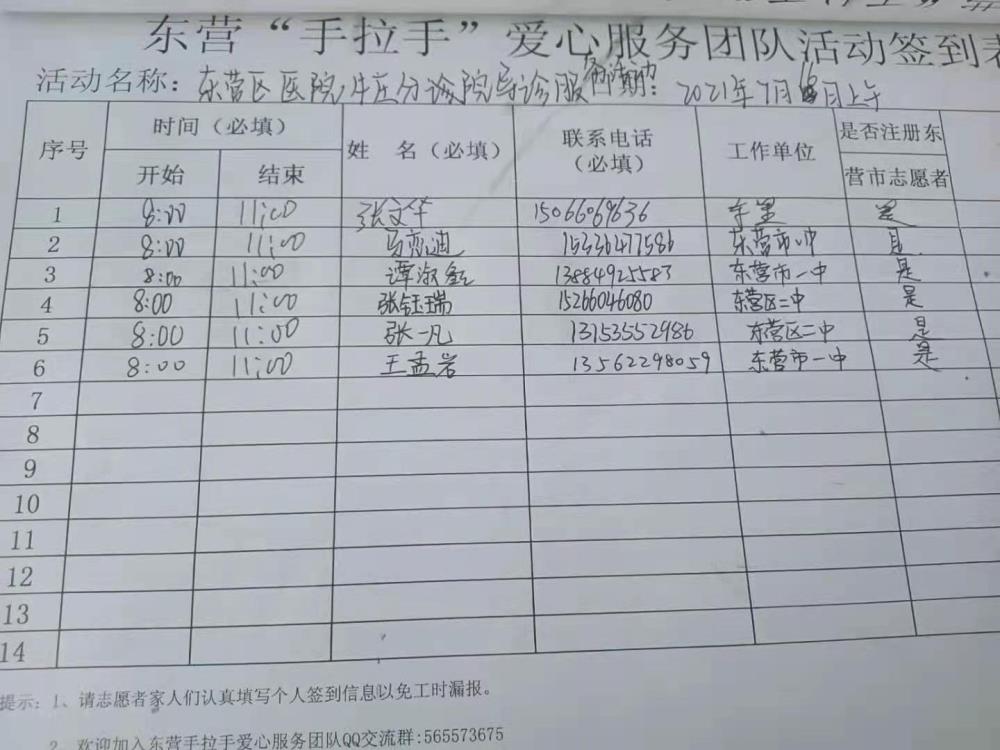 东营“手拉手”爱心服务团队活动签到表
活动名称：东营区医院牛庄分诊院导诊服务活动 日期：2021年7月16日上午
序号 时间（必填） 姓 名（必填） 联系电话（必填） 工作单位 是否注册东营市志愿者
开始 结束
1 8:00 11:00 张文华 15066069636 是
2 8:00 11:00 15336477586 东营市一中 是
3 8:00 11:00 谭淑红 13884925583 东营市一中 是
4 8:00 11:00 张钰瑞 15266046080 东营区二中 是
5 8:00 11:00 张一凡 13153552986 东营区二中 是
6 8:00 11:00 王孟岩 13562298059 东营市一中 是
7
8
9
10
11
12
13
14
提示：1、请志愿者家人们认真填写个人签到信息以免工时漏报。
2、欢迎加入东营手拉手爱心服务团队QQ交流群:565573675